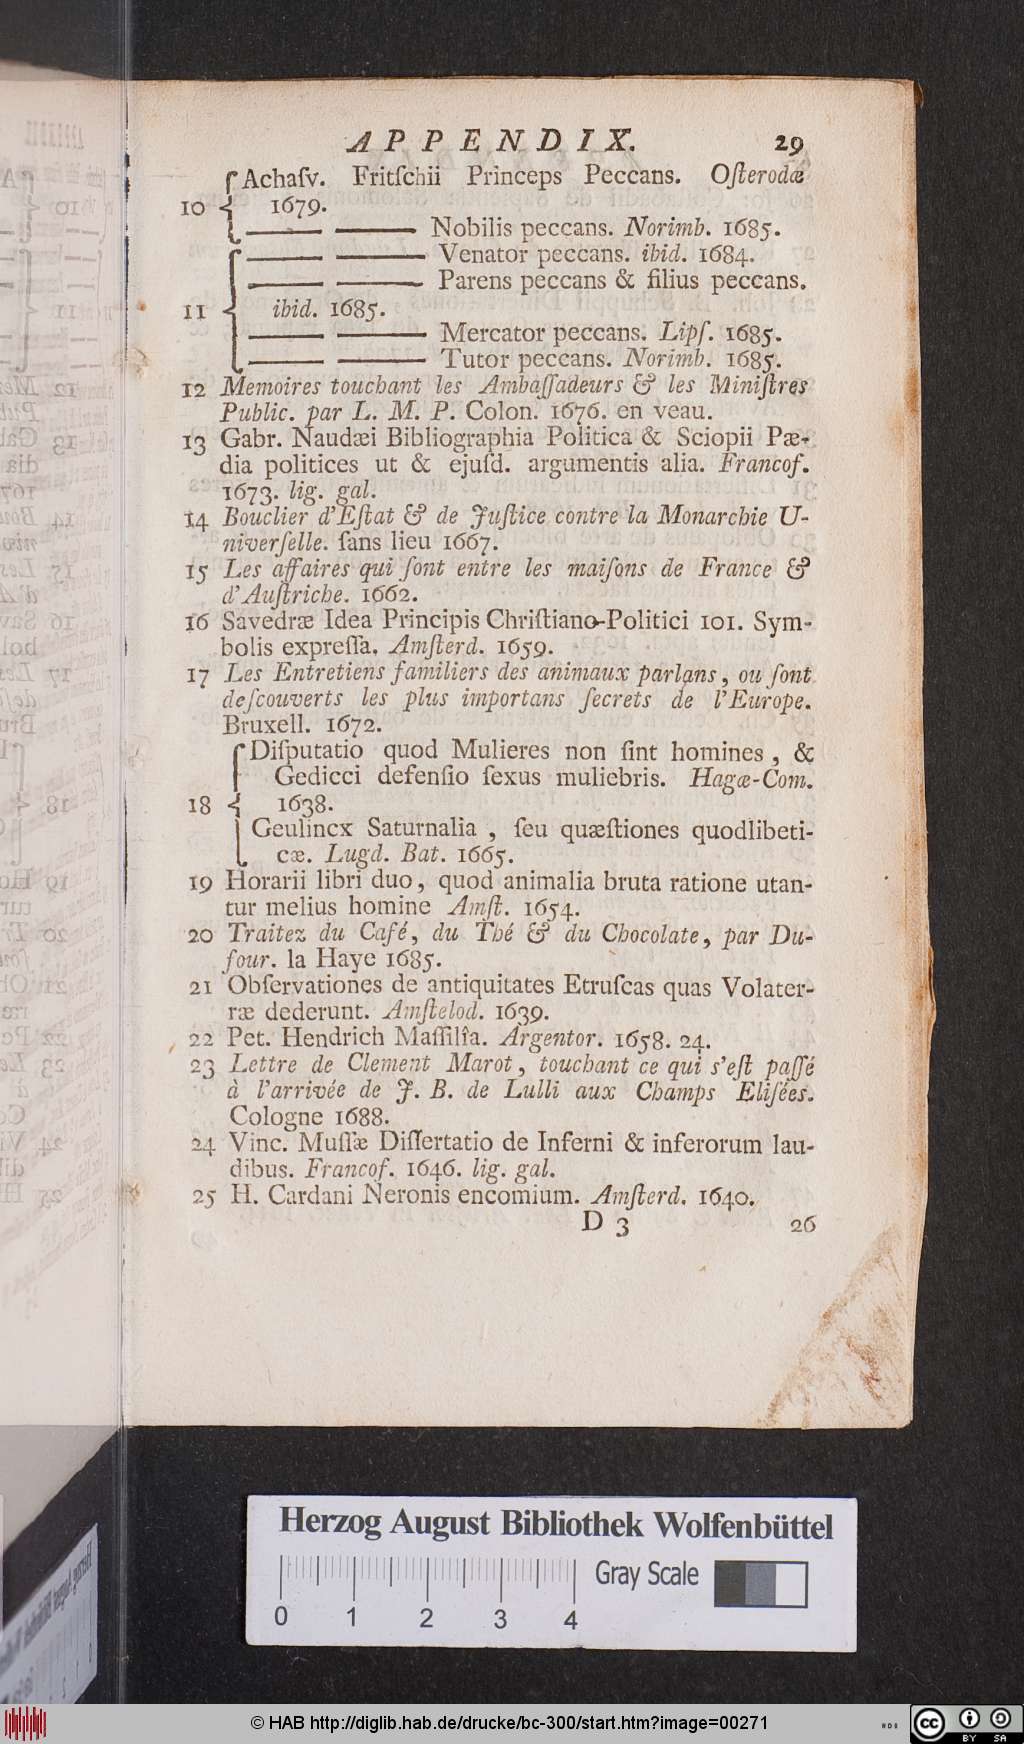 APPENDIX. 29
Achaſv. Fritſchii Princeps Peccans. Oſterodæ
10 1679.
—— —— Nobilis peccans. Norimb. 1685.
—— —— Venator peccans. ibid. 1684.
—— —— Parens peccans & filius peccans.
11 ibid. 1685.
—— —— Mercator peccans. Lipſ. 1685.
—— —— Tutor peccans. Norimb. 1685.
12 Memoires touchant les Ambaſſadeurs & les Miniſtres
Public. par L. M. P. Colon. 1676. en veau.
13 Gabr. Naudæi Bibliographia Politica & Sciopii Pæ-
dia politices ut & ejuſd. argumentis alia. Francof.
1673. lig. gal.
14 Bouclier d'Eſtat & de Juſtice contre la Monarchie U-
niverſelle. ſans lieu 1667.
15 Les affaires qui ſont entre les maiſons de France &
d'Auſtriche. 1662.
16 Savedræ Idea Principis Chriſtiano-Politici 101. Sym-
bolis expreſſa. Amſterd. 1659.
17 Les Entretiens familiers des animaux parlans, ou ſont
deſcouverts les plus importans ſecrets de l'Europe.
Bruxell. 1672.
Diſputatio quod Mulieres non ſint homines, &
Gedicci defenſio ſexus muliebris. Hagæ-Com.
18 1638.
Geulincx Saturnalia, ſeu quæſtiones quodlibeti-
cæ. Lugd. Bat. 1665.
19 Horarii libri duo, quod animalia bruta ratione utan-
tur melius homine Amſt. 1654.
20 Traitez du Café, du Thé & du Chocolate, par Du-
four. la Haye 1685.
21 Obſervationes de antiquitates Etruſcas quas Volater-
ræ dederunt. Amſtelod. 1639.
22 Pet. Hendrich Maſſilîa. Argentor. 1658. 24.
23 Lettre de Clement Marot, touchant ce qui s'eſt paſſé
à l'arrivée de J. B. de Lulli aux Champs Eliſées.
Cologne 1688.
24 Vinc. Muſſæ Diſſertatio de Inferni & inferorum lau-
dibus. Francof. 1646. lig. gal.
25 H. Cardani Neronis encomium. Amſterd. 1640.
D 3 26
Herzog August Bibliothek Wolfenbüttel
Gray Scale
0 1 2 3 4
© HAB http://diglib.hab.de/drucke/bc-300/start.htm?image=00271
cc BY SA